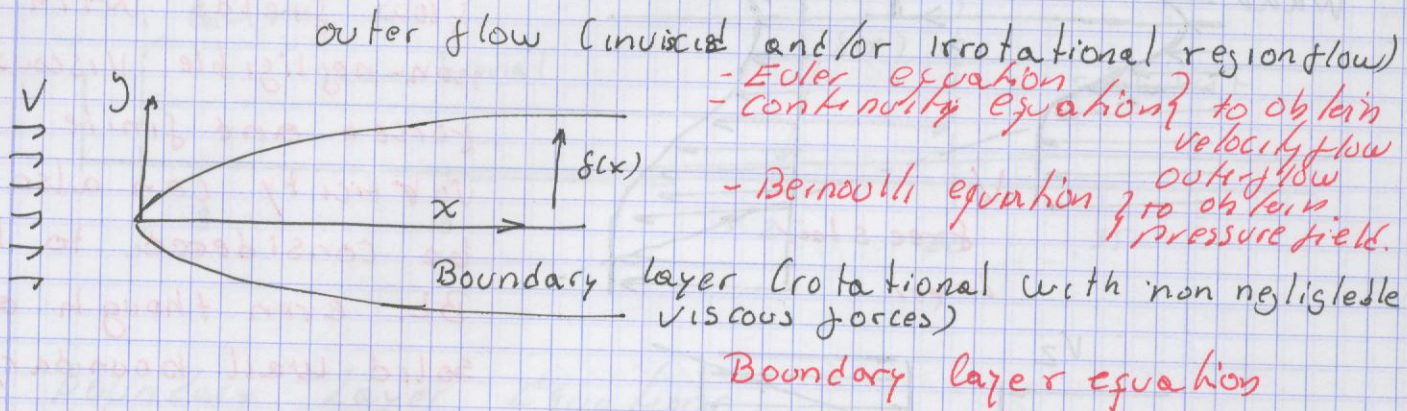 outer flow (inviscid and/or irrotational region flow)
- Euler equation } to obtain
- continuity equation velocity flow
outer flow
- Bernoulli equation } to obtain
pressure field.
V y
δ(x)
x
Boundary layer (rotational with non negligleble
viscous forces)
Boundary layer equation